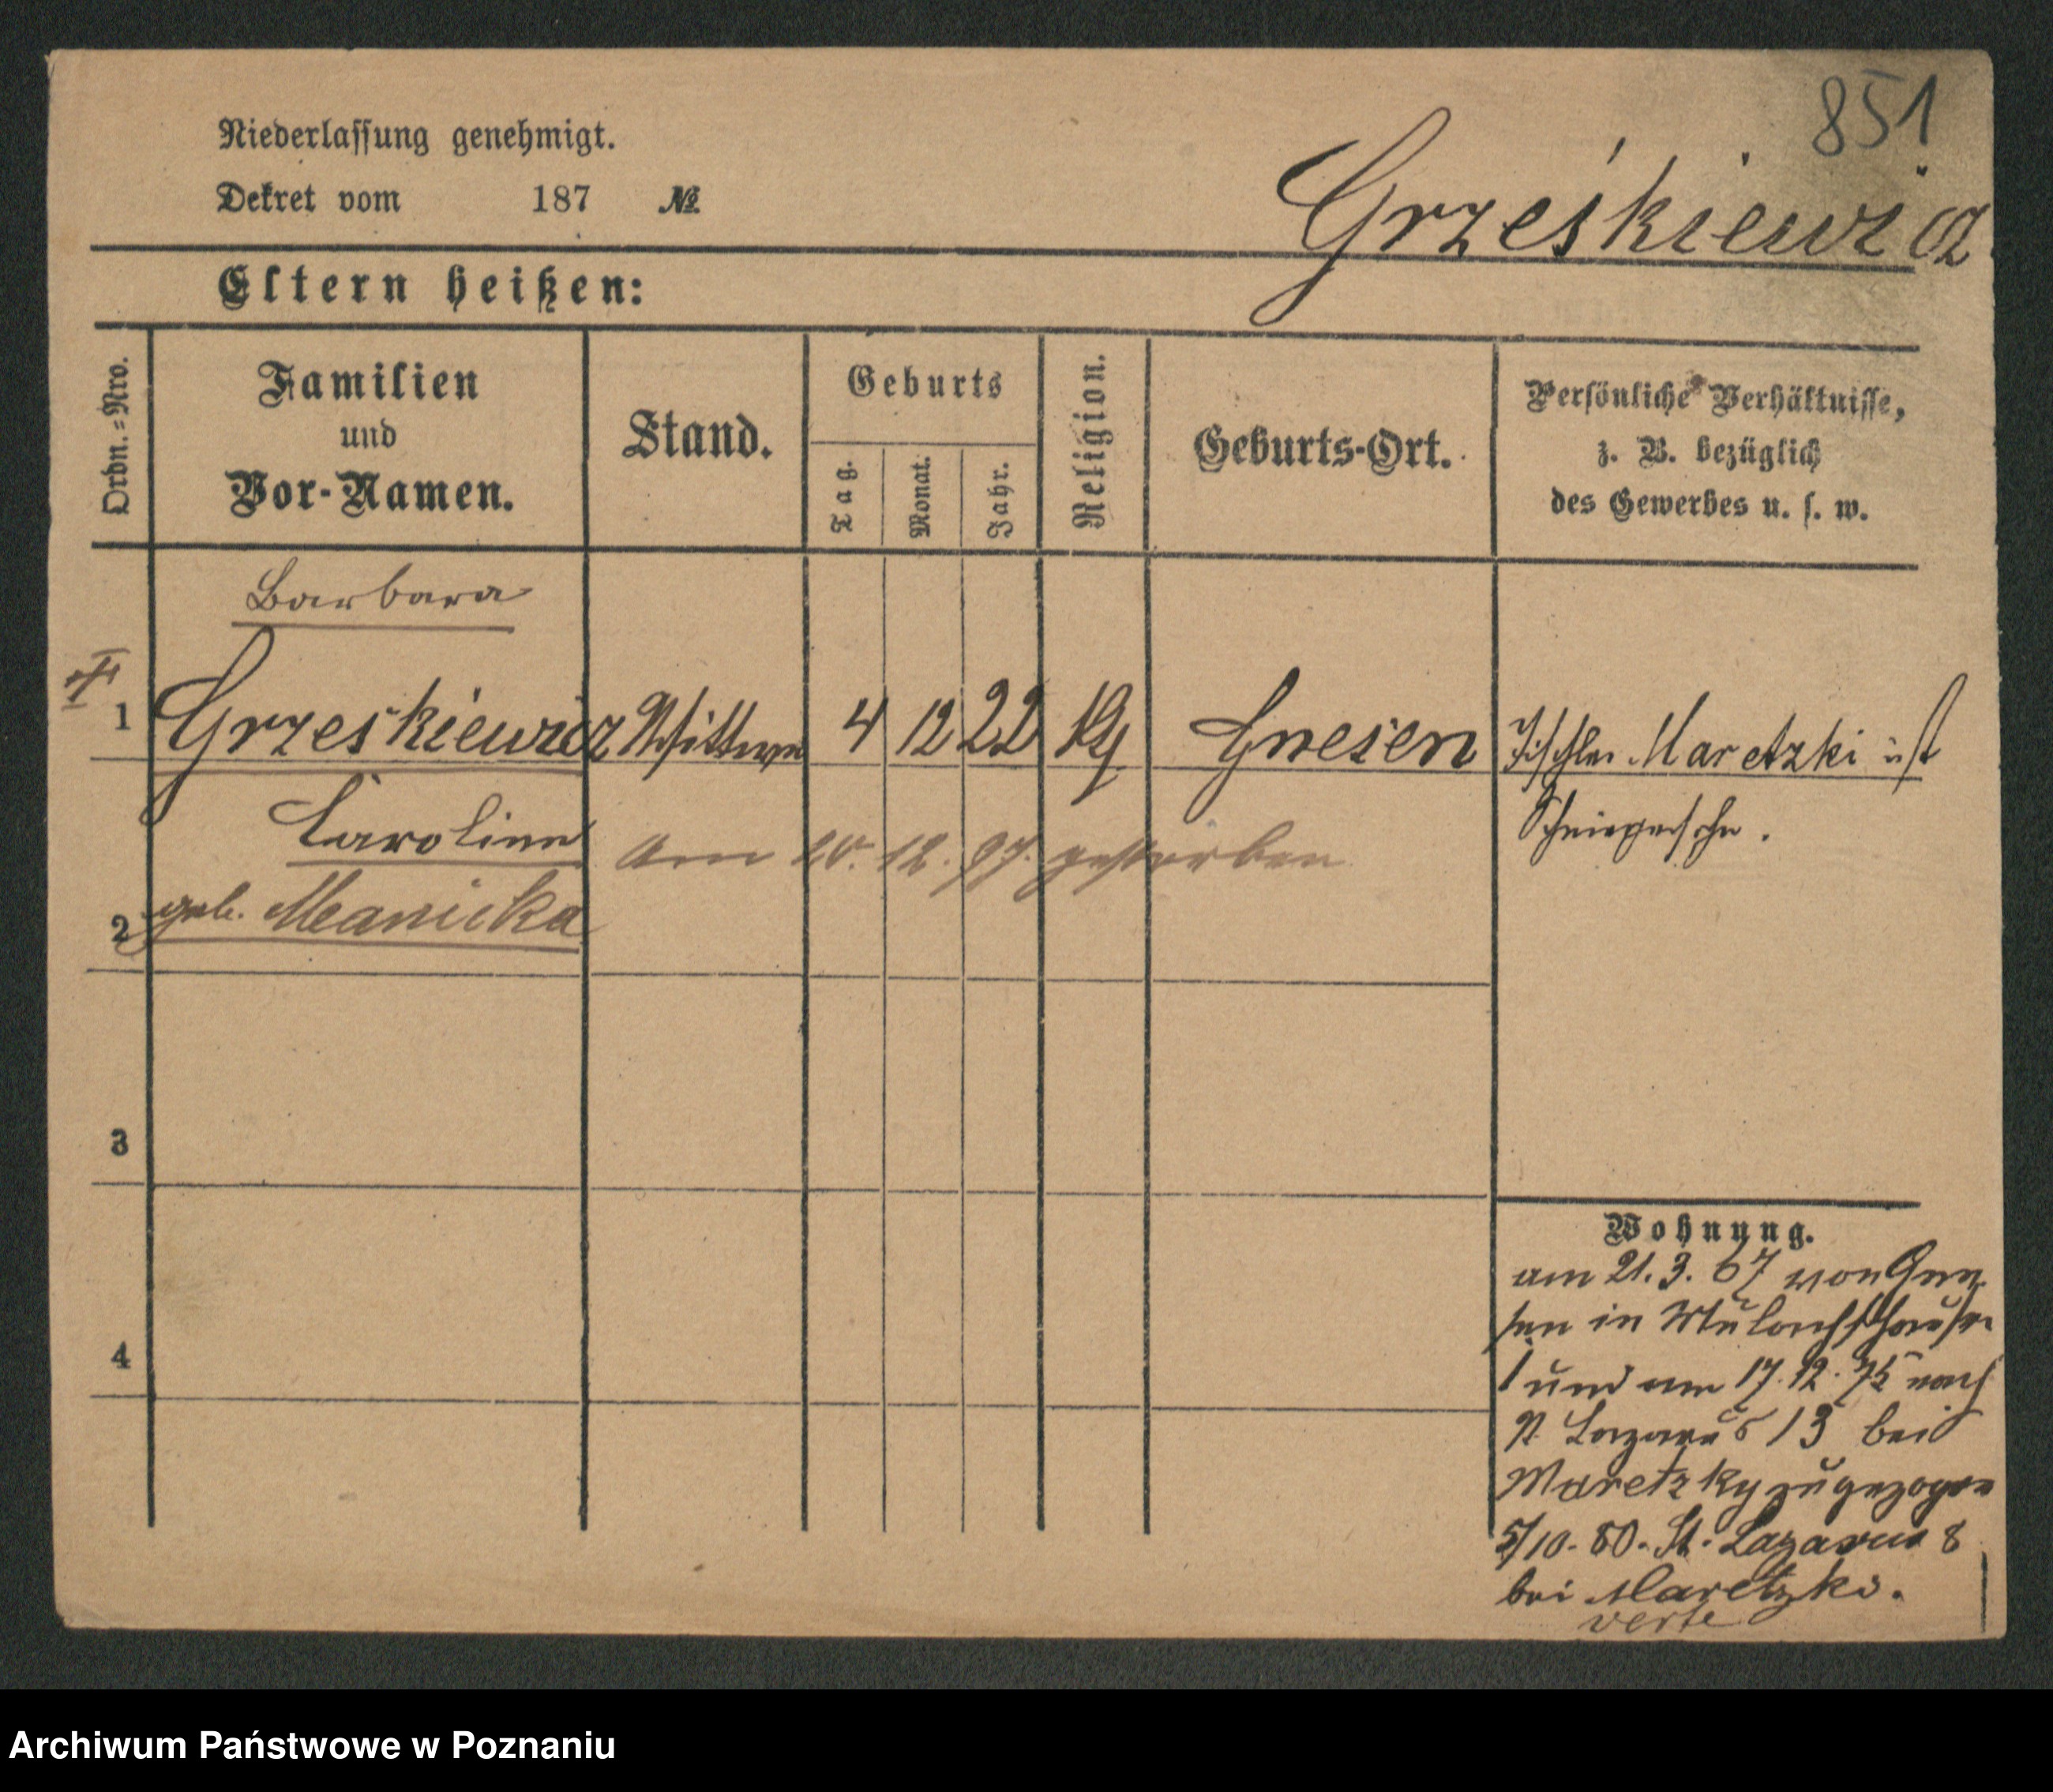 851
Niederlassung genehmigt.
Dekret vom 187 №
Grześkiewicz
Eltern heißen:
Ordn.=Nro.
Familien
und
Vor-Namen.
Stand.
Geburts
Tag.
Monat.
Jahr.
Religion.
Geburts-Ort.
Persönliche Verhältnisse,
z. B. bezüglich
des Gewerbes u. s. w.
Barbara
1 Grzeskiewicz Wittwe 4 12 22 Gnesen Tischler Maretzki ist
Schwiegersohn.
Caroline
am 12. 97. gestorben
2 geb. Manicka
3
4
Wohnung.
am 21. 3. 67 von Gne
sen in
1 und am 17. 12. 75 nach
St Lazarus 13 bei
Maretzky zugezogen
5/10. 80. St. Lazarus 8
bei Maretzki.
verte
Archiwum Państwowe w Poznaniu